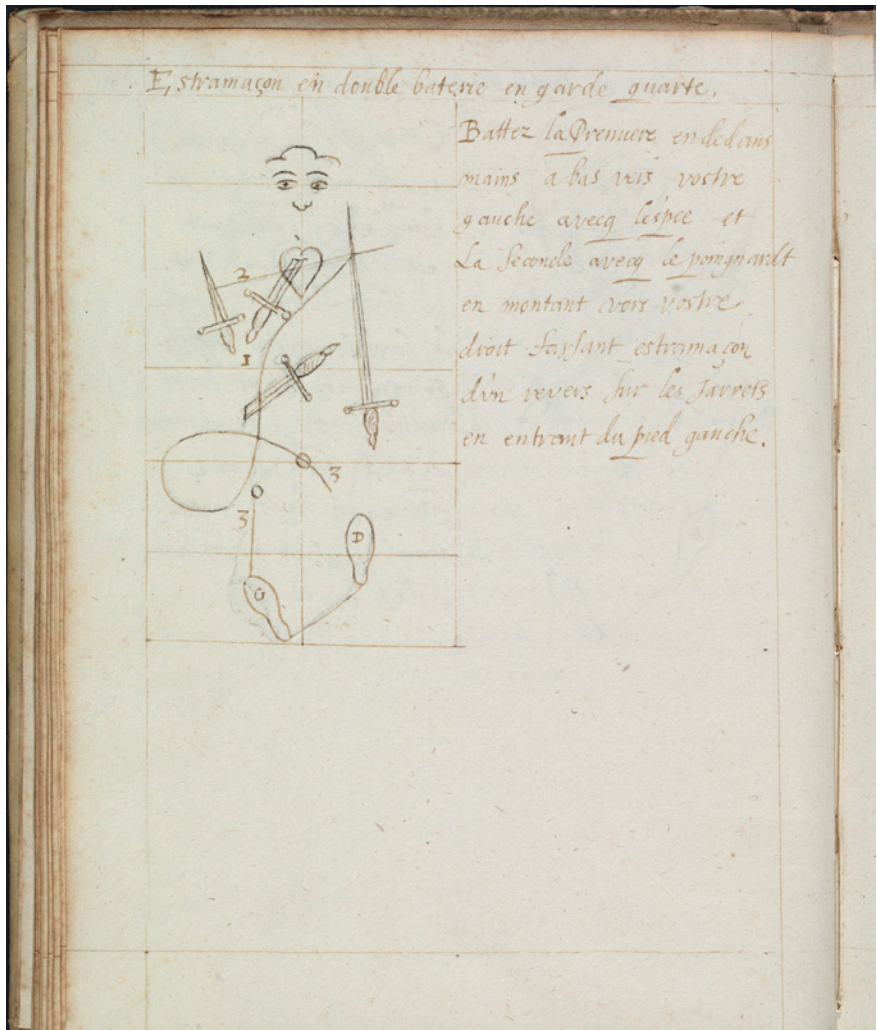 Estramaçon en double baterie en garde quarte.
Battez la Premiere en dedans
mains a bas vers vostre
gauche avecq lespee et
La Seconde avecq le poingnardt
en montant vers vostre
droit faisant estramaçon
d'un revers sur les Jarrets
en entrant du pied gauche.
2
1
3
3
D
G